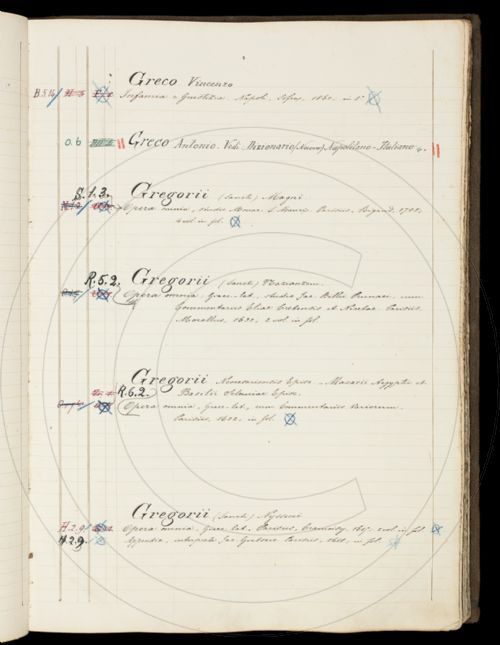 Greco Vincenzo
B.5.16
Infamia e Giustizia. Napoli, 1860. in 8°
o.b Greco Antonio. Vedi Dizionario (Nuovo) Napolitano-Italiano
S.1.3. Gregorii (Sancti) Magni
Opera omnia, studio Monac. S. Mauri. Parisiis, 1705.
4 vol. in fol.
R.5.2. Gregorii (Sancti) Nazianzeni
Opera omnia, Graec. lat., studio Jac. Billii Prunaei, cum
Commentariis Eliae Cretensis et Nicetae. Parisiis.
Morellus, 1630. 2 vol. in fol.
Gregorii Neocaesariensis Episc. - Macarii Aegyptii et
R.6.2. Basilii Seleuciae Episc.
Opera omnia, Graec. lat., cum Commentariis Variorum.
Parisiis, 1622. in fol.
Gregorii (Sancti) Nysseni
H.2.9 Opera omnia, Graec. lat., Parisiis, 2 vol. in fol
H.2.9. Appendix, Jac. Gretsero Parisiis, in fol.
C